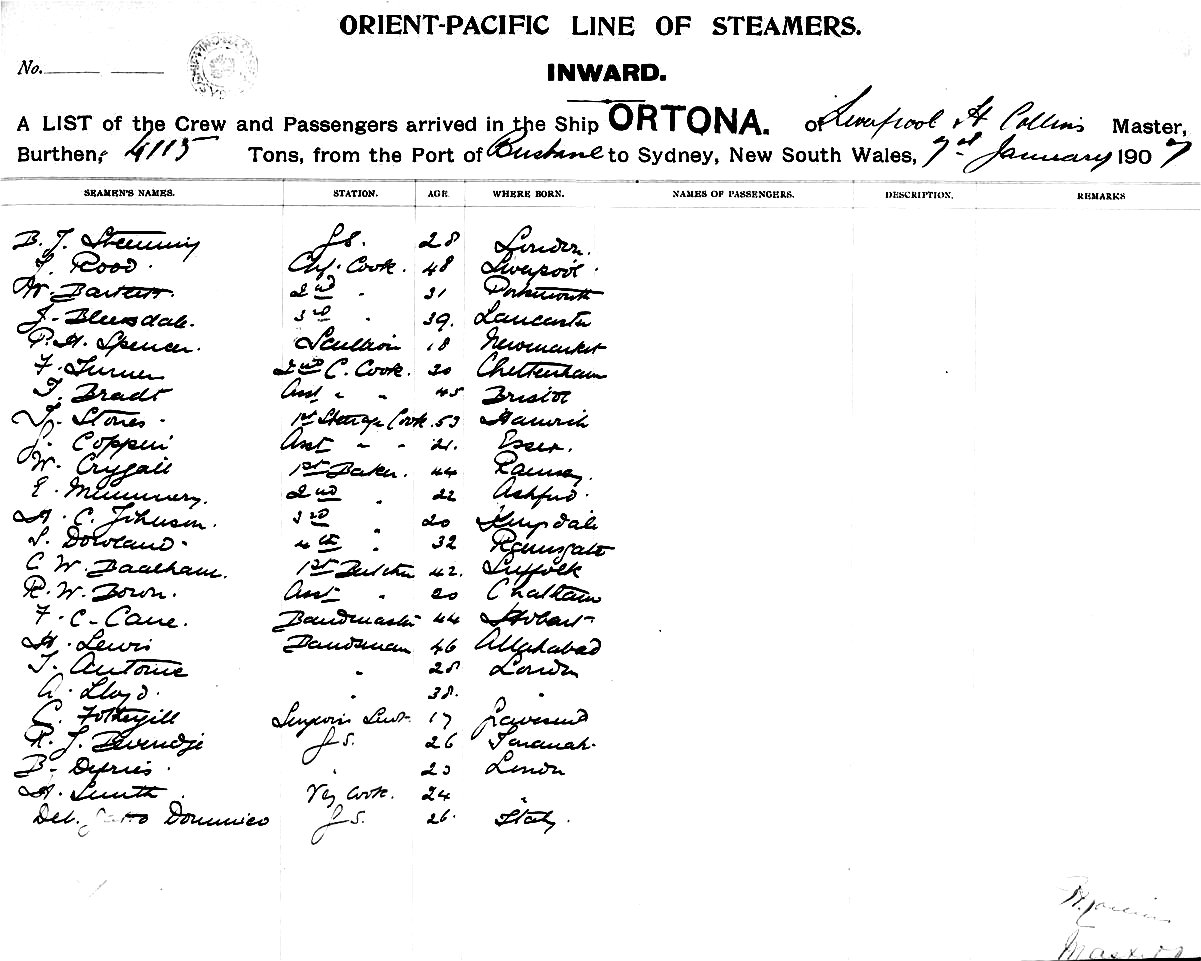 ORIENT-PACIFIC LINE OF STEAMERS.
No.
INWARD.
A LIST of the Crew and Passengers arrived in the Ship ORTONA. of Liverpool H Collins Master,
Burthen, 4115 Tons, from the Port of Brisbane to Sydney, New South Wales, 7th January 1907
SEAMEN'S NAMES. STATION. AGE. WHERE BORN. NAMES OF PASSENGERS. DESCRIPTION. REMARKS
B. J. G.S. 28 London.
T. Rood. Chf. Cook. 48 Liverpool.
W. Bartlett. 2nd " 31 Portsmouth
J. Bleasdale. 3rd " 39. Lancaster
P. H. Spencer. Scullion 18 Newmarket
F. Turner 2nd C. Cook. 20 Cheltenham
T. Bradt Asst " " 45 Bristol
Stones. 1st Steerage Cook. 53 Harwich
J. Coppin Asst " " 21. Essex.
W. 1st Baker. 44 Ramsey.
E. Mummery. 2nd " 22 Ashford.
H. C. Johnson. 3rd " 20
S. Dowland. 4th " 32 Ramsgate
C. W. Baalham. 1st Butcher 42. Suffolk
R. W. Bown. Asst " 20 Chatham
F. C. Cane. Bandmaster 44 Hobart
H. Lewis Bandsman 46 Allahabad
T. Antonie " 28 London
A. Lloyd. " 38. "
C. Fothergill 17 Gravesend
R. J. G.S. 26
B. Defries. " 23 London
H. Smith Veg Cook. 24 "
Del Domenico G.S. 26. Italy.
H. Collins
Master